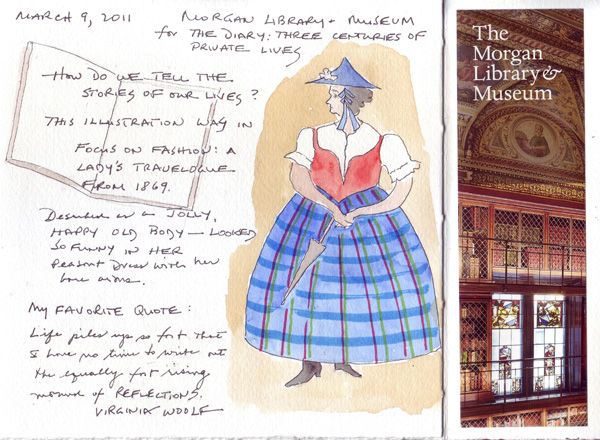 MARCH 9, 2011
MORGAN LIBRARY + MUSEUM
for THE DIARY: THREE CENTURIES OF
PRIVATE LIVES
HOW DO WE TELL THE
STORIES OF OUR LIVES?
THIS ILLUSTRATION WAS IN
FOCUS ON FASHION: A
LADY'S TRAVELOGUE
FROM 1869.
Described as a JOLLY,
HAPPY OLD BODY — LOOKED
SO FUNNY IN HER
Peasant Dress with her
bare arms.
MY FAVORITE QUOTE:
Life piles up so fast that
I have no time to write out
the equally fast rising
mound of REFLECTIONS.
VIRGINIA WOOLF
The
Morgan
Library &
Museum